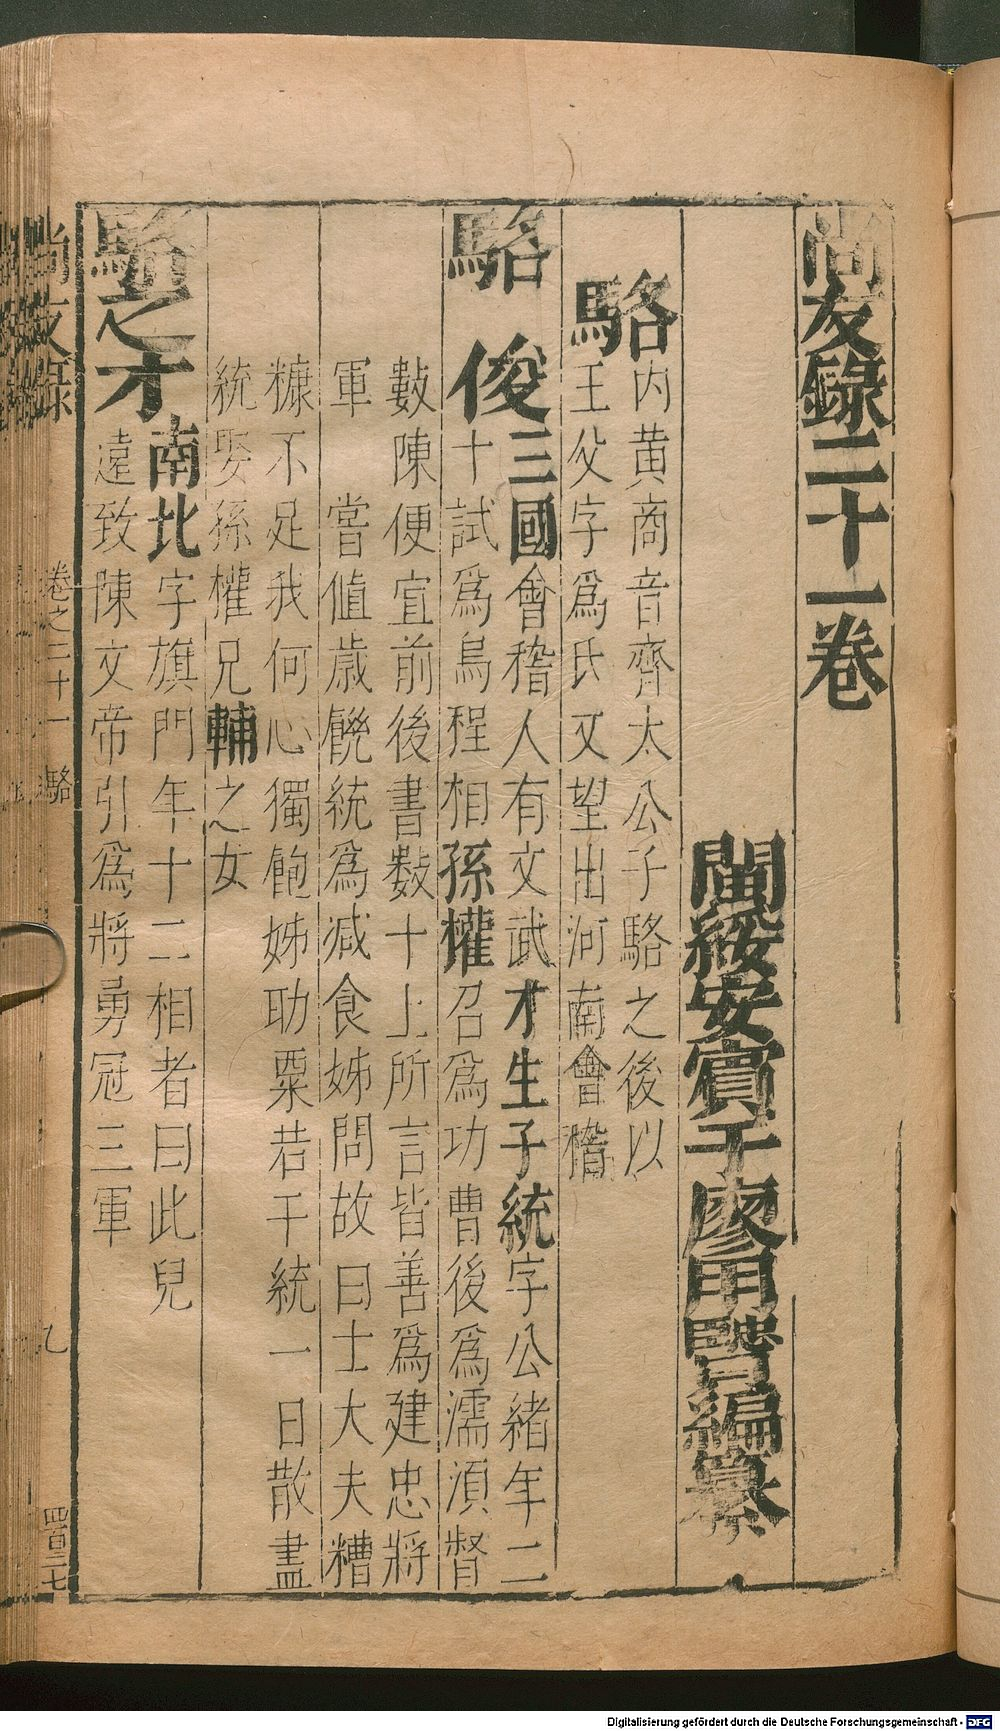 尚友錄二十一卷
閩綏安賓于廖用賢編纂
駱
內黃商音齊太公子駱之後以
王父字爲氏又望出河南會稽
駱俊
三國會稽人有文武才生子統字公緒年二
十試爲烏程相孫權召爲功曹後爲濡須督
數陳便宜前後書數十上所言皆善爲建忠將
軍嘗值歲饑統爲減食姊問故曰士大夫糟
糠不足我何心獨飽姊助粟若干統一日散盡
統娶孫權兄輔之女
駱之才
南北字旗門年十二相者曰此兒
遠致陳文帝引爲將勇冠三軍
尚友錄 卷之二十一 駱 九 四百二七
Digitalisierung gefördert durch die Deutsche Forschungsgemeinschaft - DFG